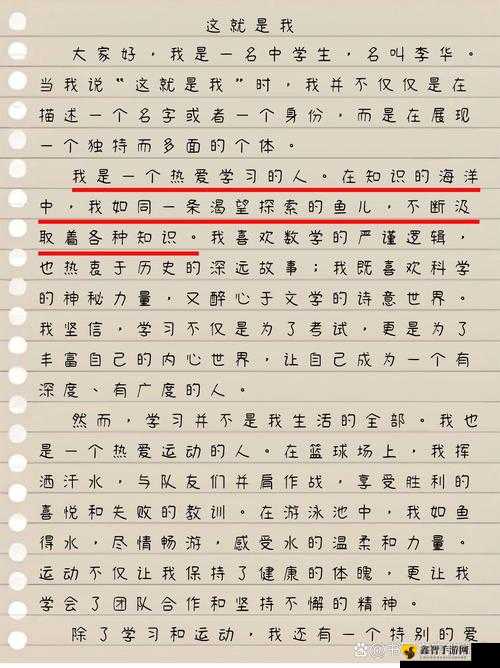 这就是我
大家好，我是一名中学生，名叫李华。
当我说“这就是我”时，我并不仅仅是在
描述一个名字或者一个身份，而是在展现
一个独特而多面的个体。
我是一个热爱学习的人。在知识的海洋
中，我如同一条渴望探索的鱼儿，不断汲
取着各种知识。我喜欢数学的严谨逻辑，
也热衷于历史的深远故事；我既喜欢科学
的神秘力量，又醉心于文学的诗意世界。
我坚信，学习不仅是为了考试，更是为了
丰富自己的内心世界，让自己成为一个有
深度、有广度的人。
然而，学习并不是我生活的全部。我也
是一个热爱运动的人。在篮球场上，我挥
洒汗水，与队友们并肩作战，享受胜利的
喜悦和失败的教训。在游泳池中，我如鱼
得水，尽情畅游，感受水的温柔和力量。
运动不仅让我保持了健康的体魄，更让我
学会了团队合作和坚持不懈的精神。
除了学习和运动，我还有一个特别的爱
鑫智手游网